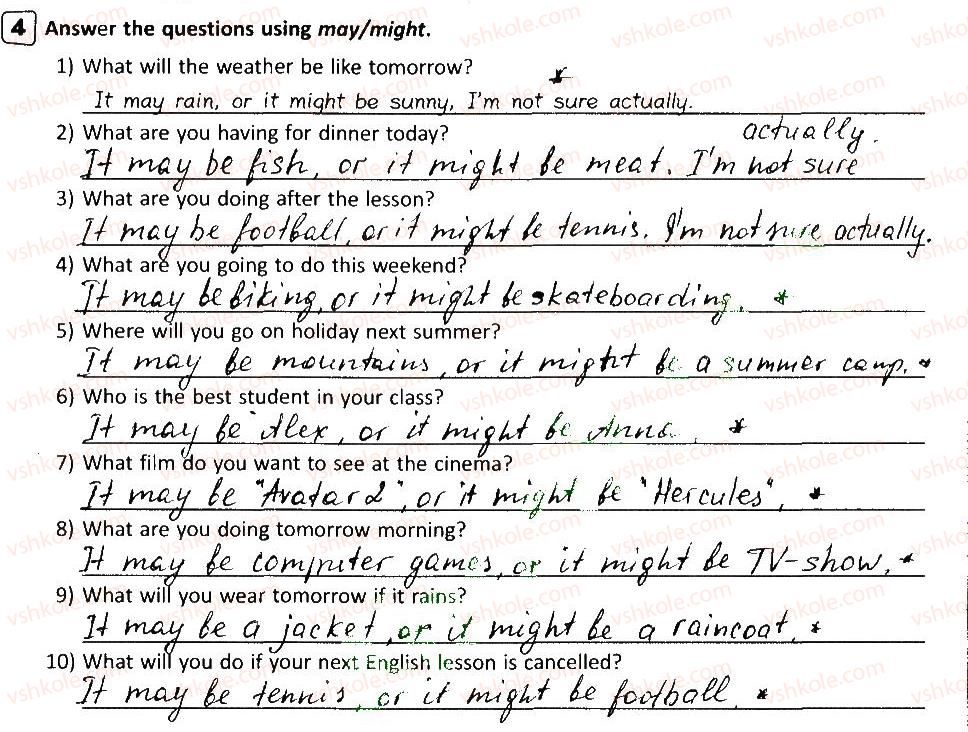 4 Answer the questions using may/might.
1) What will the weather be like tomorrow? *
It may rain, or it might be sunny, I'm not sure actually.
2) What are you having for dinner today? actually.
It may be fish, or it might be meat. I'm not sure
3) What are you doing after the lesson?
It may be football, or it might be tennis. I'm not sure actually.
4) What are you going to do this weekend?
It may be biking, or it might be skateboarding. *
5) Where will you go on holiday next summer?
It may be mountains, or it might be a summer camp. *
6) Who is the best student in your class?
It may be Alex, or it might be Anna. *
7) What film do you want to see at the cinema?
It may be "Avatar 2", or it might be "Hercules", *
8) What are you doing tomorrow morning?
It may be computer games, or it might be TV-show. *
9) What will you wear tomorrow if it rains?
It may be a jacket, or it might be a raincoat. *
10) What will you do if your next English lesson is cancelled?
It may be tennis, or it might be football. *
vshkole.com